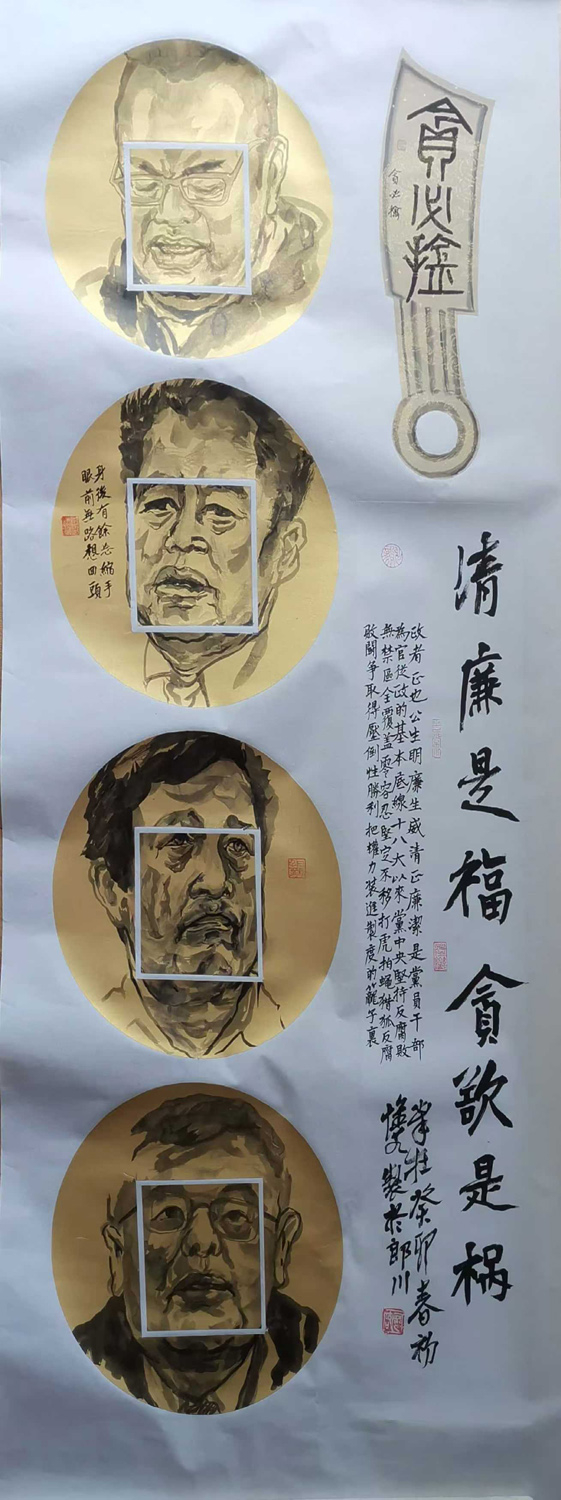 貪必捦
貪必擒
清廉是福貪欲是祸
政者正也公生明廉生威清正廉潔是黨員干部
為官從政的基本底線十八大以來黨中央堅持反腐敗
無禁區全覆蓋零容忍堅定不移打虎拍蠅猎狐反腐
敗鬪争取得壓倒性勝利把權力裝進製度的籠子裏
癸卯春初
製於郎川
身後有餘忘縮手
眼前無路想回頭